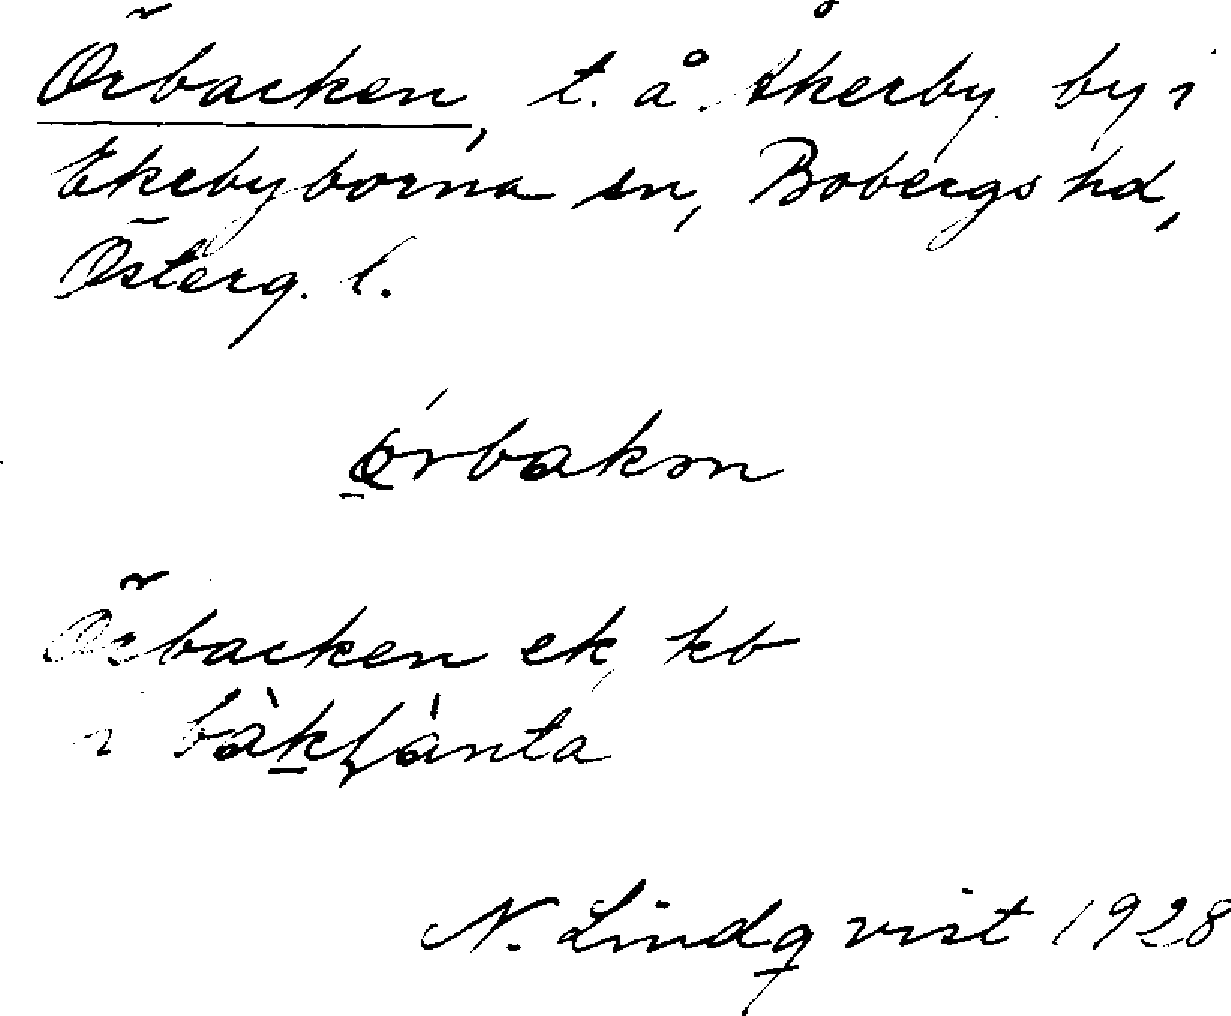 Örbacken, t. å. Åkerby by i
Ekebyborna sn, Bobergs hd,
Österg. l.
Örbacken ek, kb
i
N. Lindqvist 1928